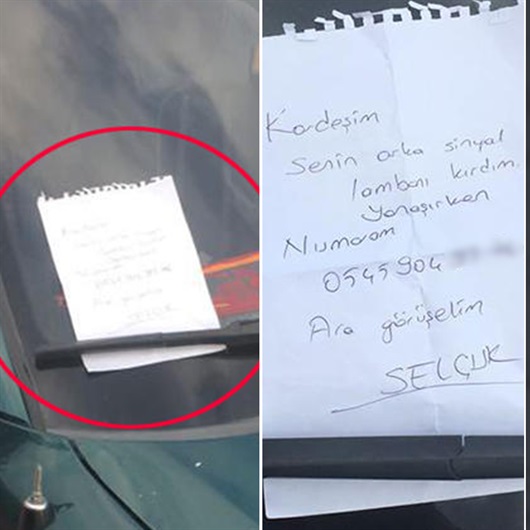 Kardeşim
Senin arka sinyal
lambanı kırdım
Yanaşırken
Numaram
0545 904
Ara görüşelim
SELÇUK